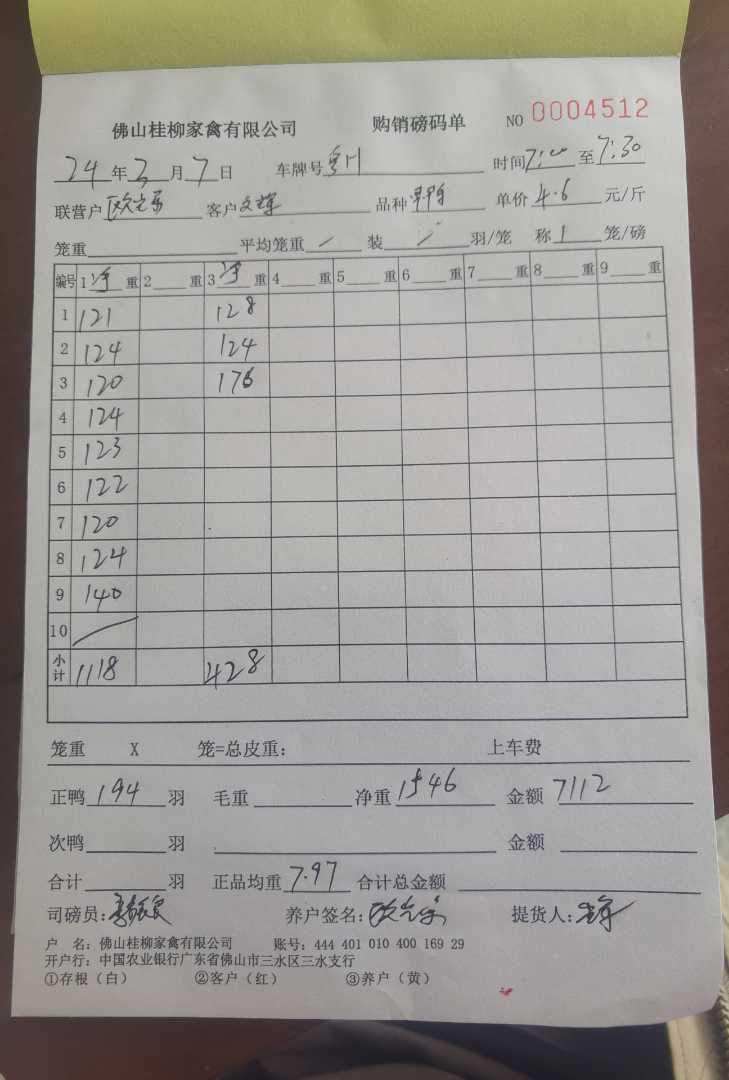 佛山桂柳家禽有限公司 购销磅码单 NO 0004512
24年3月7日 车牌号 时间7:00至7:30
联营户 客户文辉 品种 单价4.6元/斤
笼重 平均笼重 / 装 / 羽/笼 称1笼/磅
编号 1净重 2 重 3净重 4 重 5 重 6 重 7 重 8 重 9 重
1 121 128
2 124 124
3 120 176
4 124
5 123
6 122
7 120
8 124
9 140
10 /
小计 1118 428
笼重 X 笼=总皮重: 上车费
正鸭194羽 毛重 净重1546 金额7112
次鸭 羽 金额
合计 羽 正品均重7.97 合计总金额
司磅员: 养户签名: 提货人:
户 名: 佛山桂柳家禽有限公司 账号: 444 401 010 400 169 29
开户行: 中国农业银行广东省佛山市三水区三水支行
①存根（白） ②客户（红） ③养户（黄）